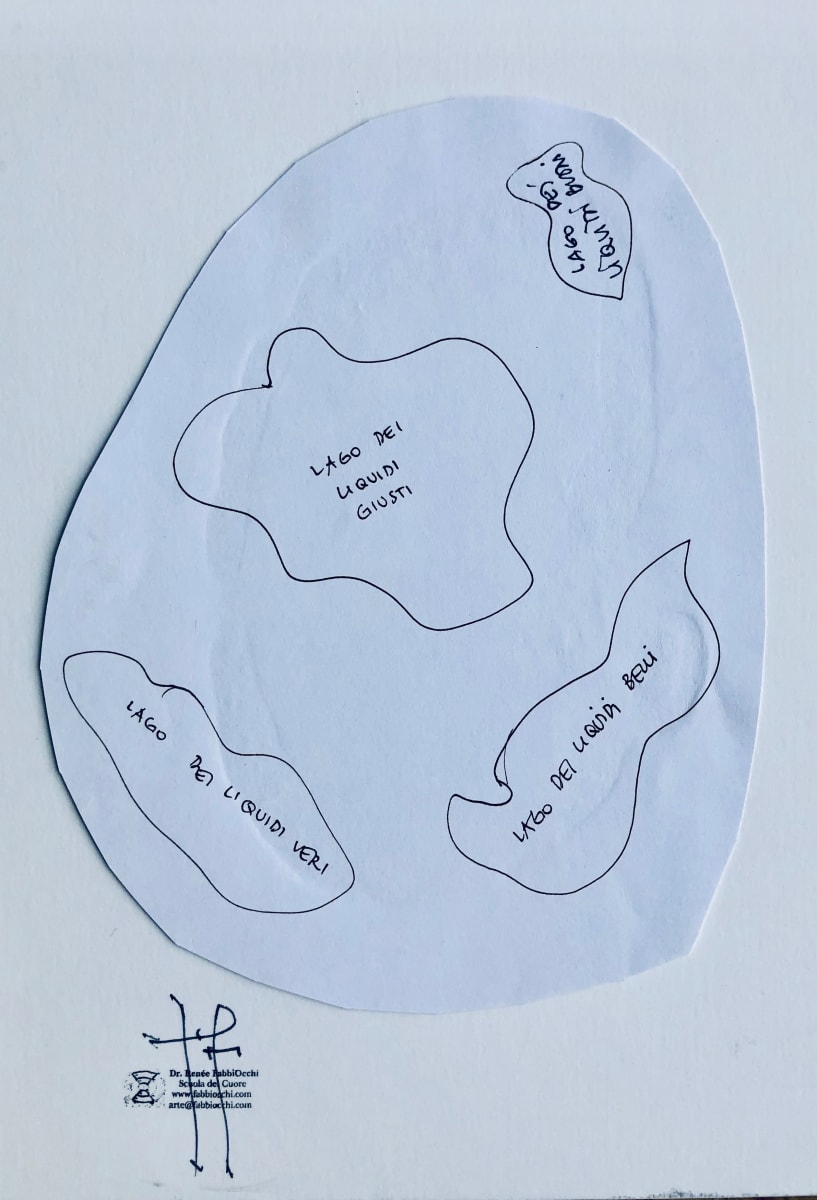 LAGO DEI
LIQUIDI BUONI
LAGO DEI
LIQUIDI
GIUSTI
LAGO DEI LIQUIDI BELLI
LAGO DEI LIQUIDI VERI
Dr. Renée FabbiOcchi
Scuola del Cuore
www.fabbiocchi.com
arte@fabbiocchi.com